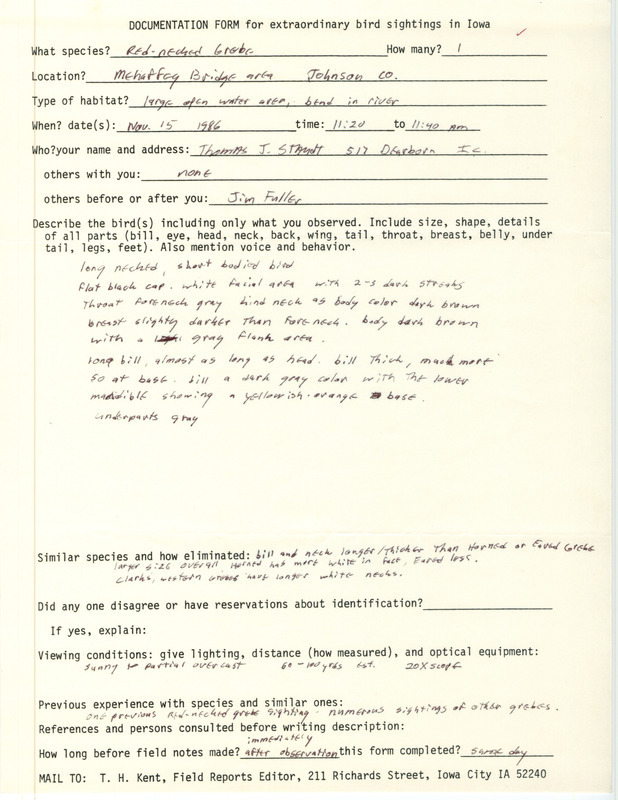 DOCUMENTATION FORM for extraordinary bird sightings in Iowa
What species? Red-necked Grebe How many? 1
Location? Mehaffey Bridge area Johnson Co.
Type of habitat? large open water area, bend in river
When? date(s): Nov. 15 1986 time: 11:20 to 11:40 am
Who?your name and address: Thomas J. Staudt 517 Dearborn I.C.
others with you: none
others before or after you: Jim Fuller
Describe the bird(s) including only what you observed. Include size, shape, details
of all parts (bill, eye, head, neck, back, wing, tail, throat, breast, belly, under
tail, legs, feet). Also mention voice and behavior.
long necked, short bodied bird
flat black cap. white facial area with 2-3 dark streaks
Throat foreneck gray hind neck as body color dark brown
breast slightly darker than foreneck. body dark brown
with a gray flank area.
long bill, almost as long as head. bill thick, much more
so at base. bill a dark gray color with the lower
mandible showing a yellowish-orange base.
underparts gray
Similar species and how eliminated: bill and neck longer/thicker than Horned or Eared Grebe
larger size overall, Horned has more white in face, Eared less.
Clarks, western Grebes have longer white necks.
Did any one disagree or have reservations about identification?
If yes, explain:
Viewing conditions: give lighting, distance (how measured), and optical equipment:
sunny to partial overcast 60-100 yds est. 20X scope
Previous experience with species and similar ones:
one previous Red-necked grebe sighting. numerous sightings of other grebes.
References and persons consulted before writing description:
immediately
How long before field notes made? after observation this form completed? same day
MAIL TO: T. H. Kent, Field Reports Editor, 211 Richards Street, Iowa City IA 52240